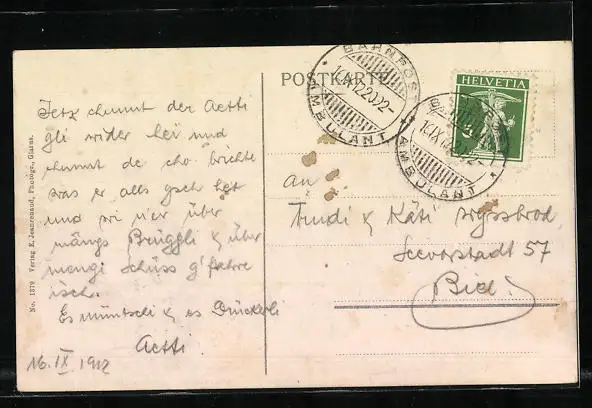 POSTKARTE
BAHNPOST
AMBULANT
HELVETIA
AMBULANT
Jetz chunnt der Aetti
gli wider hei und
chunnt de cho brichte
was er alls gseh het
und wi n'er über
mängs Brüggli & über
mengi Schüss g'fahre
isch.
Es müntschi & es Drückerli
Aetti
16. IX 1912
An
Trudi & Käti Wyssbrod
Seevorstadt 57
Biel.
No. 1379 Verlag E. Jeanrenaud, Photogr., Glarus.